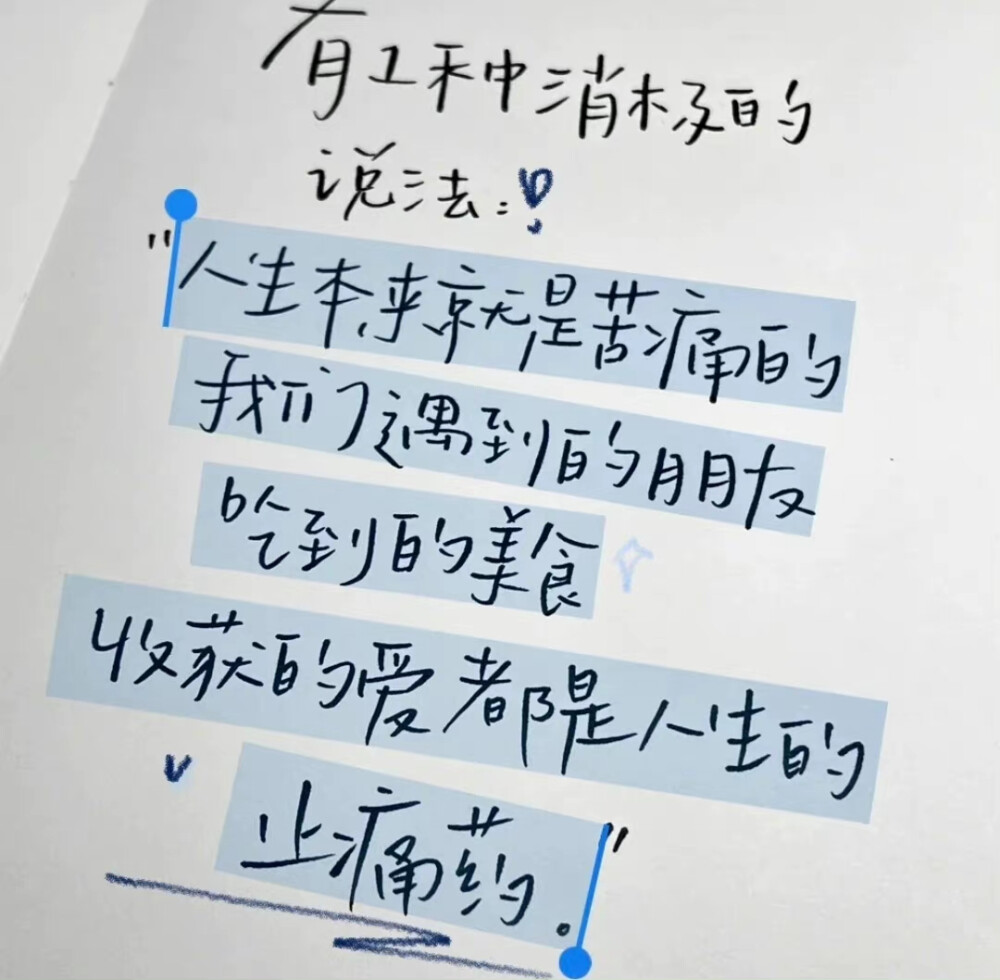 有1种消极的
说法:
"人生本来就是苦痛的
我们遇到的朋友
吃到的美食
收获的爱都是人生的
止痛药."